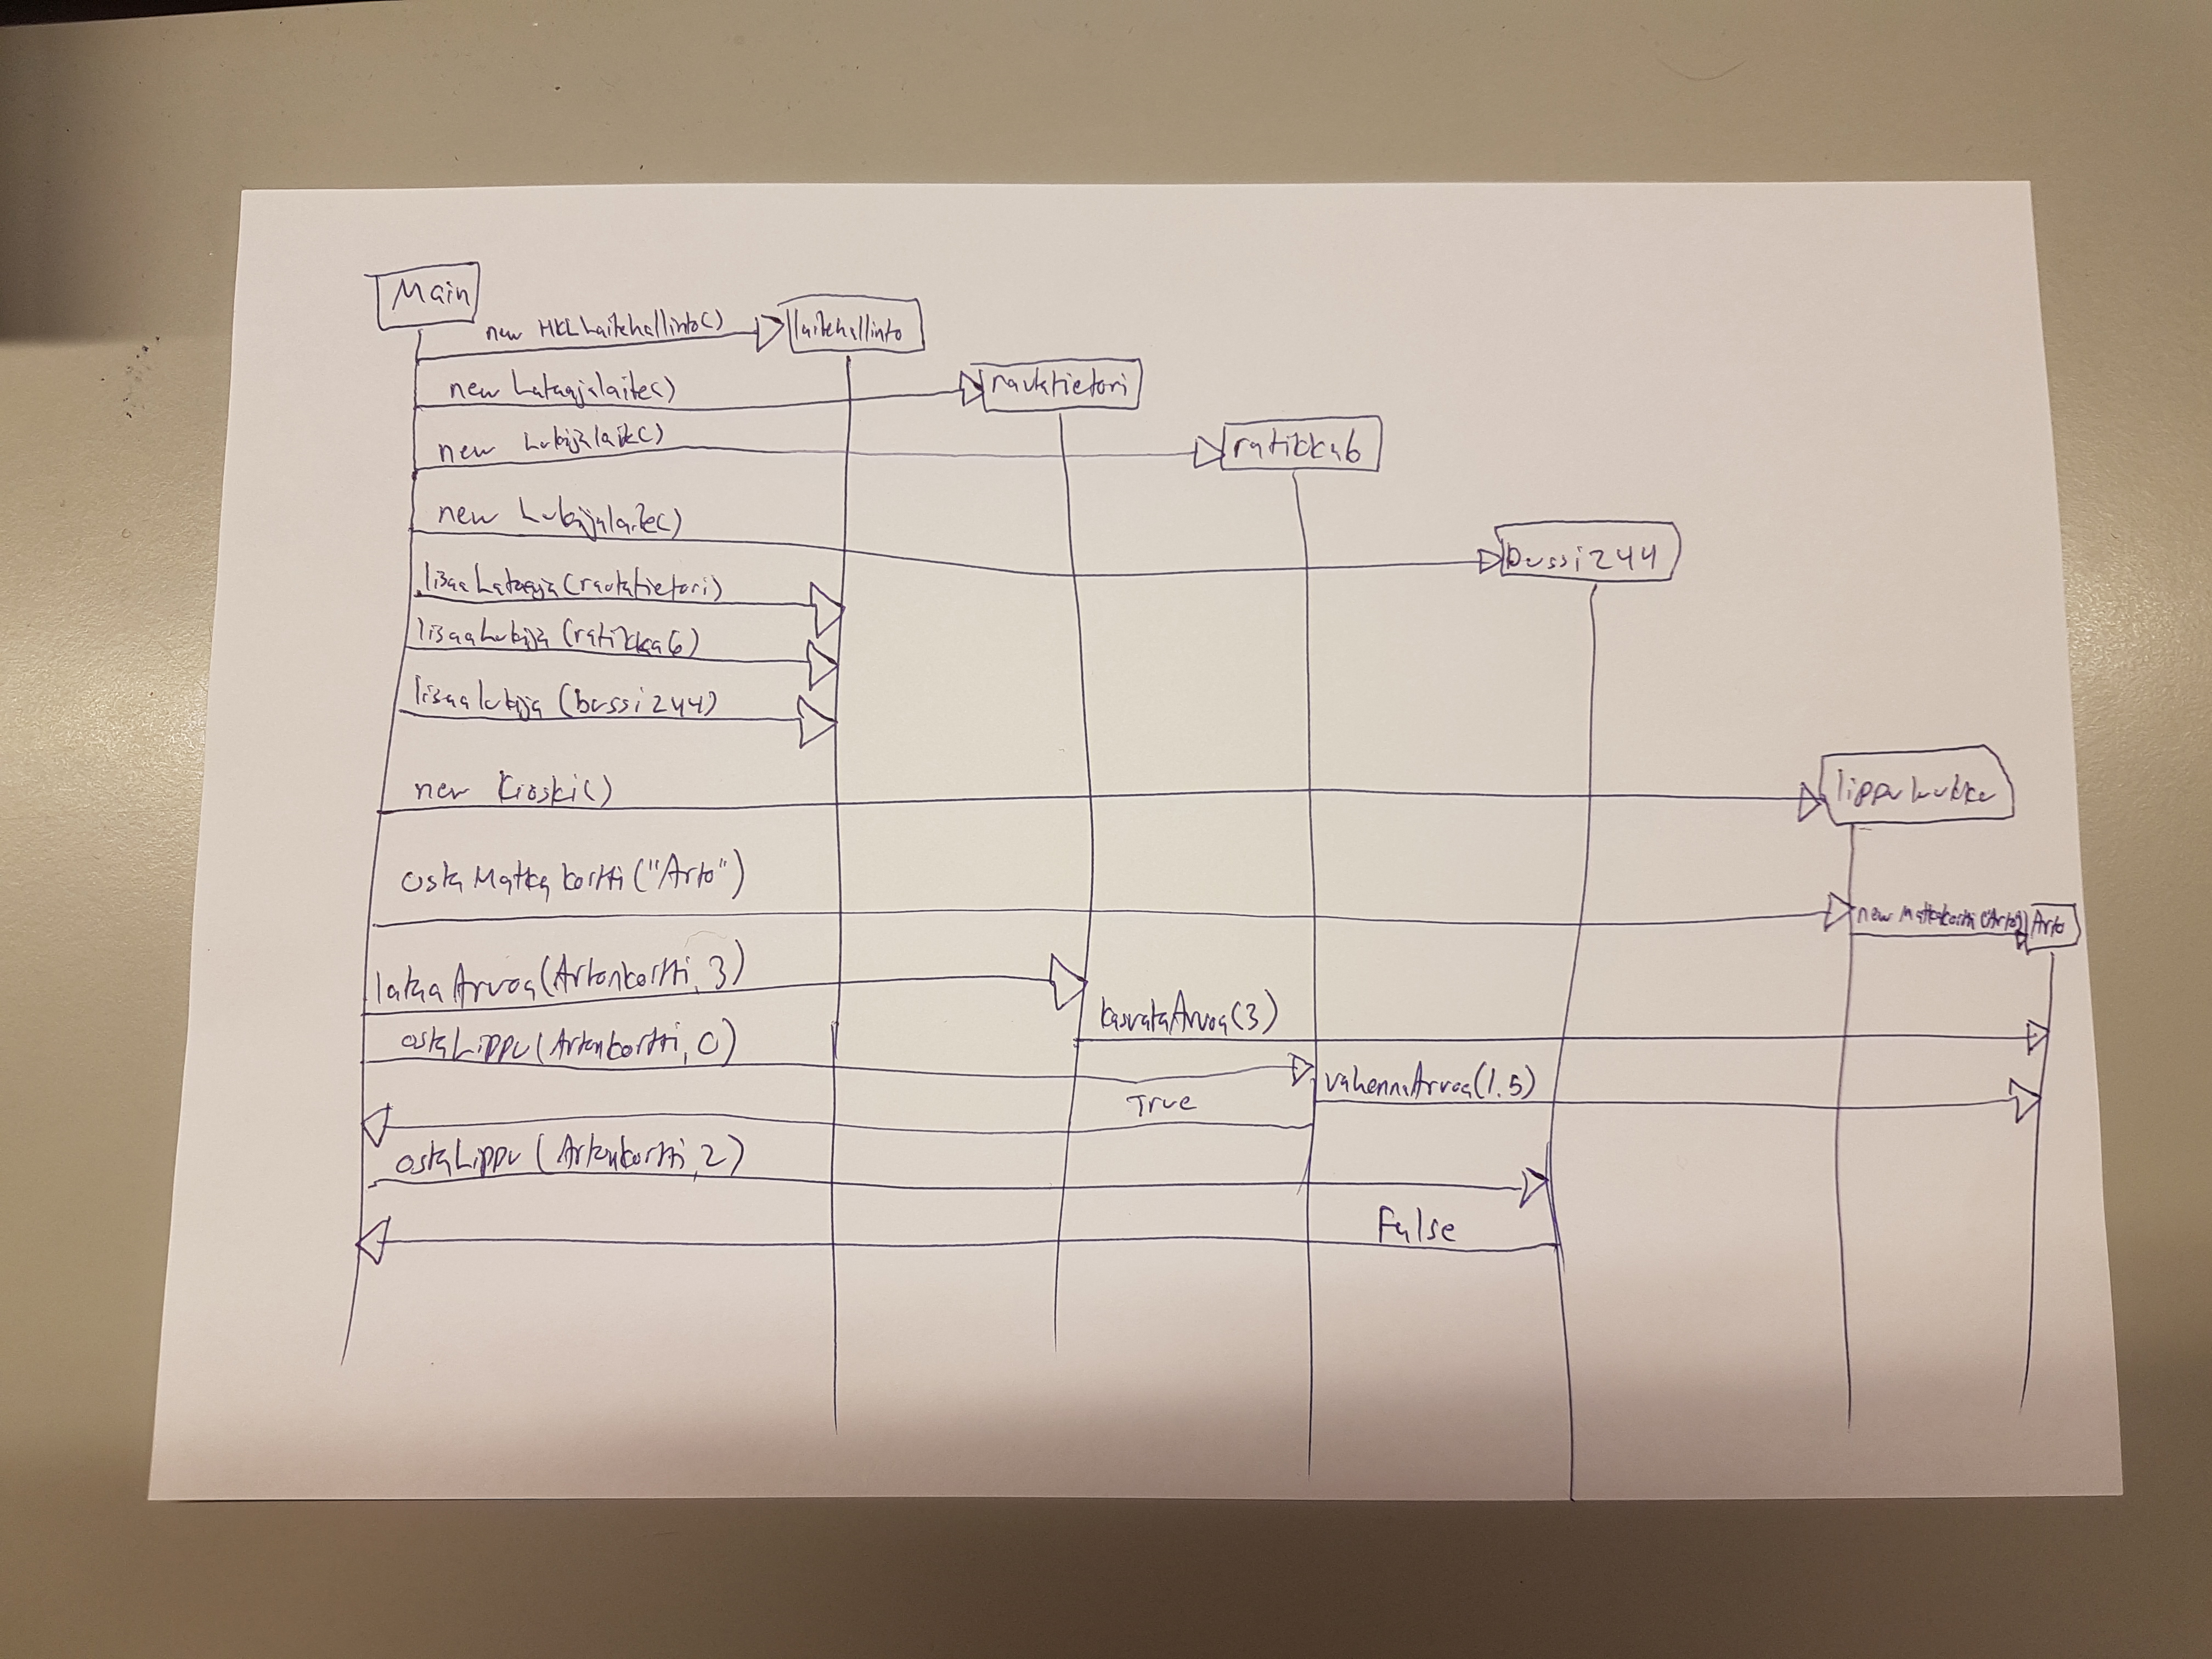 Main
new HKLLaitehallinto()
laitehallinto
new Lataajalaite()
rautatietori
new Lukijalaite()
ratikka6
new Lukijalaite()
bussi244
lisaaLataaja(rautatietori)
lisaaLukija (ratikka6)
lisaalukija (bussi244)
new Kioski()
lippuLukku
ostaMatkakortti("Arto")
new Matkakortti("Arto")
Arto
lataaArvoa(Artonkortti, 3)
kasvataArvoa(3)
ostaLippu(Artonkortti, 0)
vahennaArvoa(1.5)
True
ostaLippu (Artonkortti, 2)
False